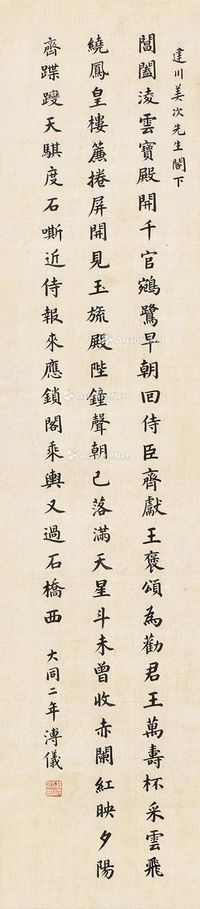 建川美次先生閣下
閶闔淩雲寶殿開千官鵷鷺早朝回侍臣齊獻王褒頌為勸君王萬壽杯采雲飛
繞鳳皇樓簾捲屏開見玉旒殿陛鐘聲朝已落滿天星斗未曾收赤闌紅映夕陽
齊蹀躞天騏度石嘶近侍報來應鎖閣乘輿又過石橋西
大同二年溥儀